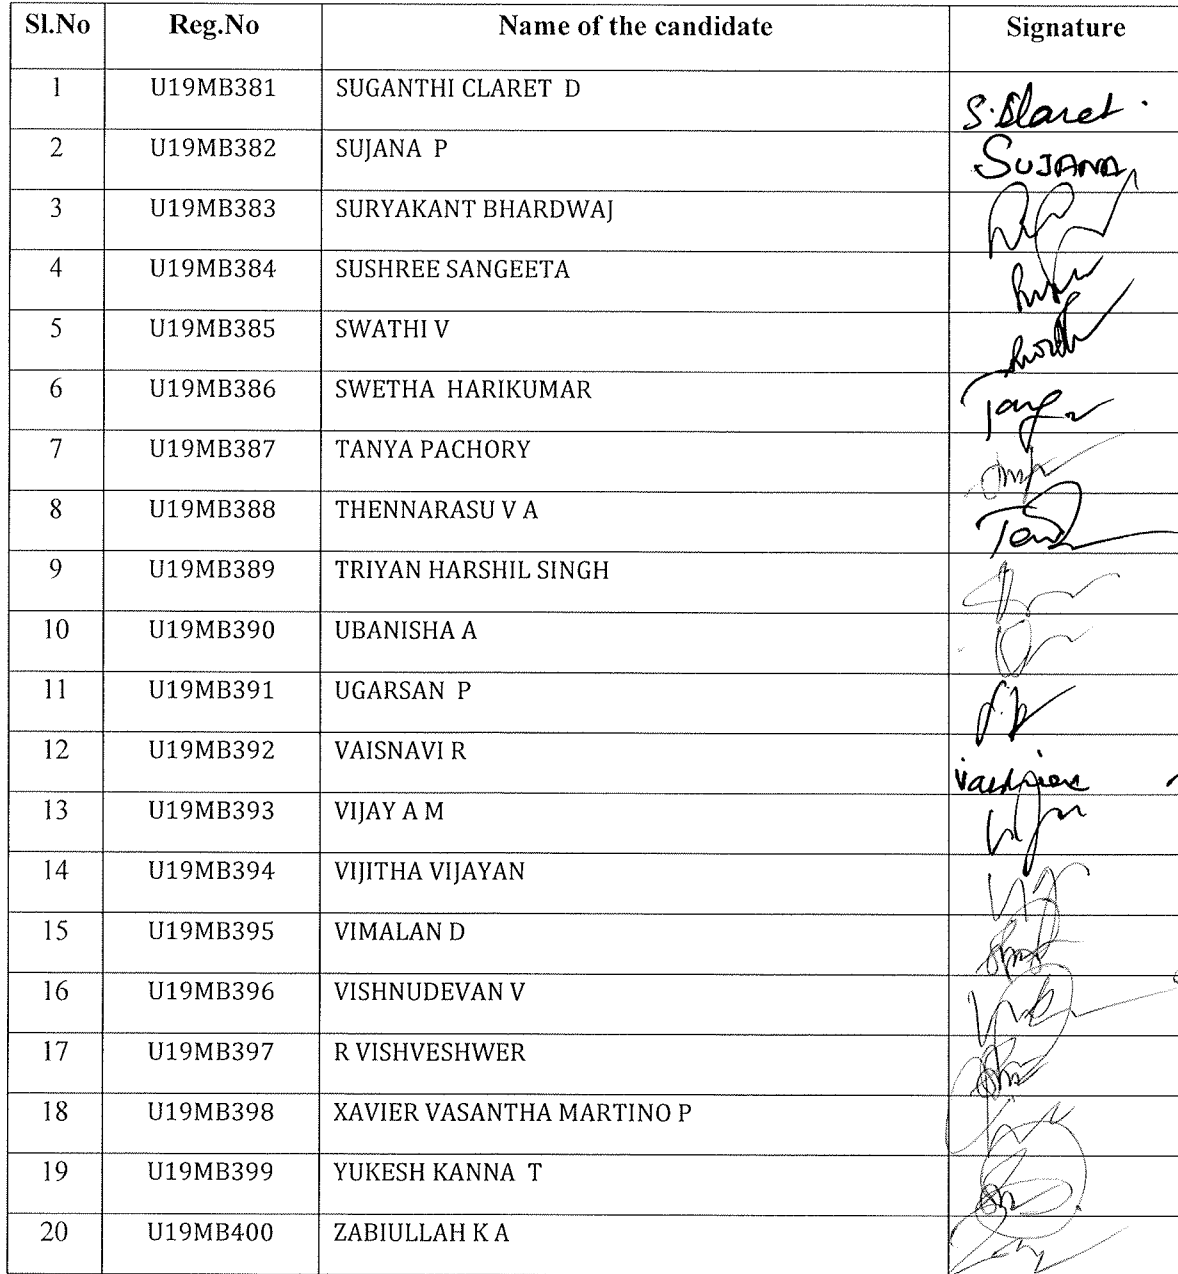 Sl.No Reg.No Name of the candidate Signature
1 U19MB381 SUGANTHI CLARET D S.Claret.
2 U19MB382 SUJANA P SUJANA
3 U19MB383 SURYAKANT BHARDWAJ
4 U19MB384 SUSHREE SANGEETA
5 U19MB385 SWATHI V
6 U19MB386 SWETHA HARIKUMAR
7 U19MB387 TANYA PACHORY
8 U19MB388 THENNARASU V A
9 U19MB389 TRIYAN HARSHIL SINGH
10 U19MB390 UBANISHA A
11 U19MB391 UGARSAN P
12 U19MB392 VAISNAVI R
13 U19MB393 VIJAY A M
14 U19MB394 VIJITHA VIJAYAN
15 U19MB395 VIMALAN D
16 U19MB396 VISHNUDEVAN V
17 U19MB397 R VISHVESHWER
18 U19MB398 XAVIER VASANTHA MARTINO P
19 U19MB399 YUKESH KANNA T
20 U19MB400 ZABIULLAH K A